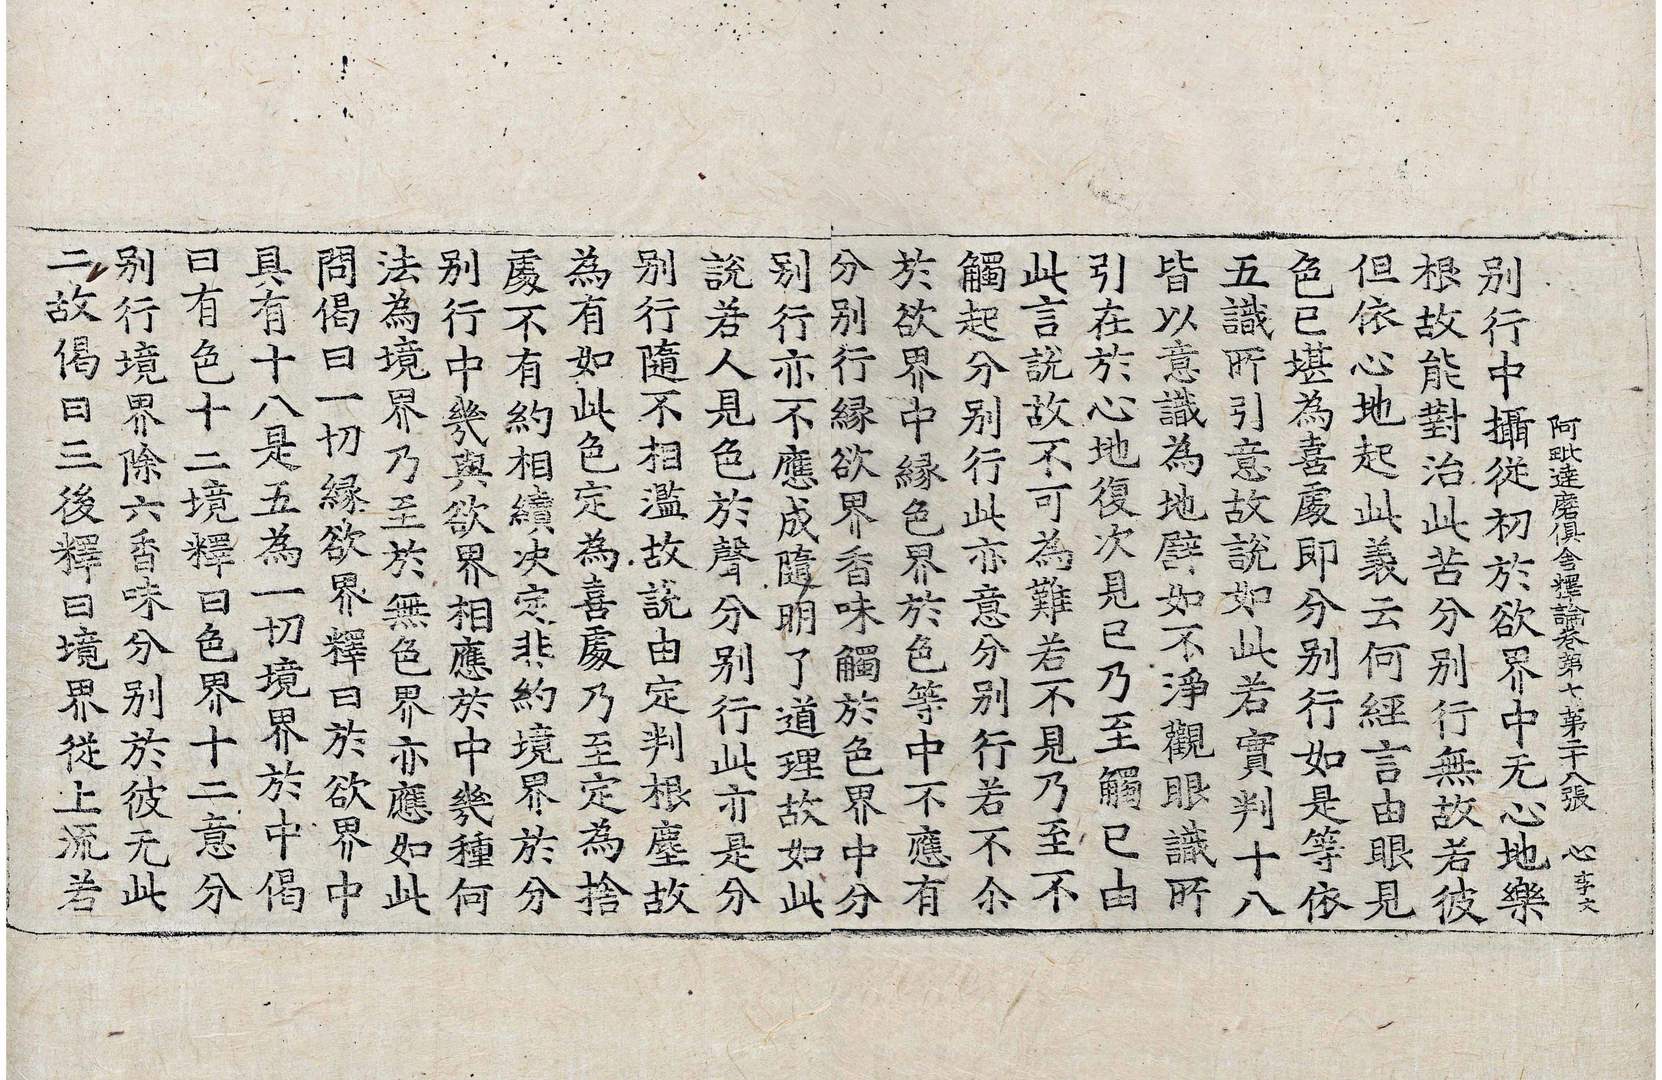 阿毗達磨俱舍釋論卷第七 第二十八張 心 李文
别行中攝從初於欲界中无心地樂
根故能對治此苦分别行無故若彼
但依心地起此義云何經言由眼見
色已堪為喜處即分别行如是等依
五識所引意故說如此若實判十八
皆以意識為地譬如不淨觀眼識所
引在於心地復次見已乃至觸已由
此言說故不可為難若不見乃至不
觸起分别行此亦意分别行若不尒
於欲界中縁色界於色等中不應有
分别行縁欲界香味觸於色界中分
别行亦不應成隨明了道理故如此
說若人見色於聲分别行此亦是分
别行隨不相濫故說由定判根塵故
為有如此色定為喜處乃至定為捨
處不有約相續决定非約境界於分
别行中幾與欲界相應於中幾種何
法為境界乃至於無色界亦應如此
問偈曰一切縁欲界釋曰於欲界中
具有十八是五為一切境界於中偈
曰有色十二境釋曰色界十二意分
别行境界除六香味分别於彼无此
二故偈曰三後釋曰境界從上流若